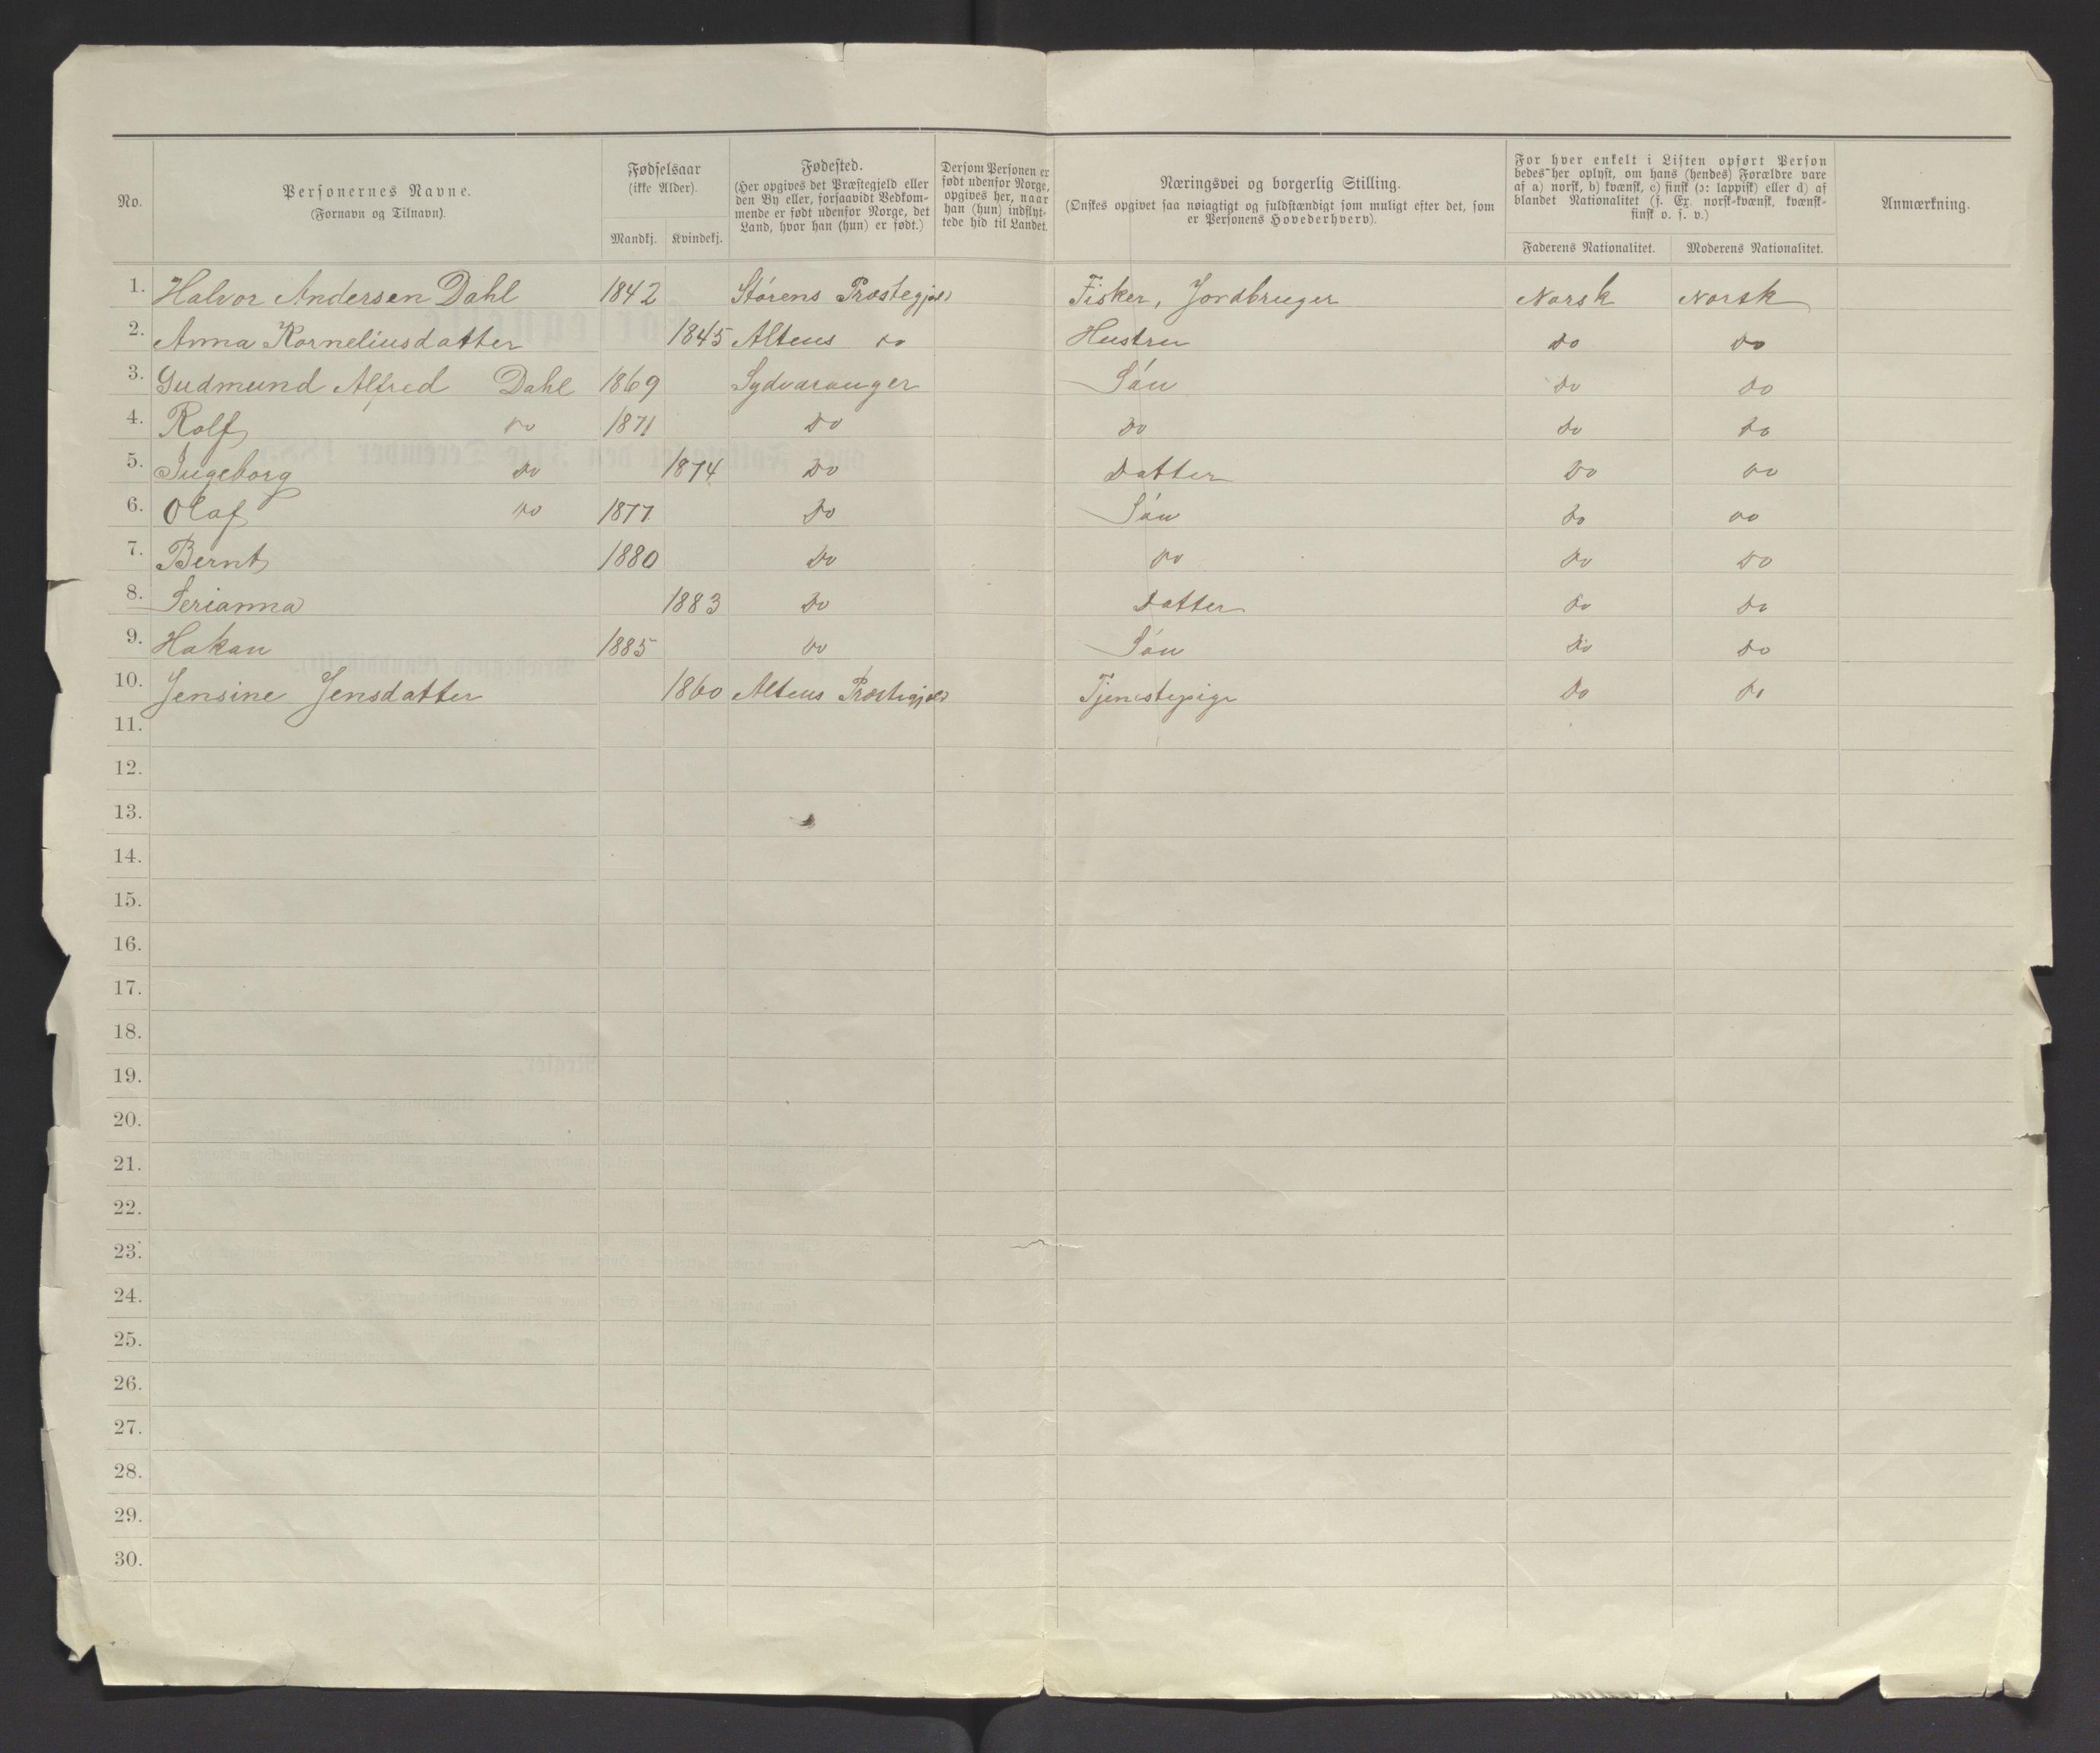 No.
Personernes Navne.
(Fornavn og Tilnavn).
Fødselsaar
(ikke Alder).
Mandkj. Kvindekj.
Fødested.
(Her opgives det Præstegjeld eller
den By eller, forsaavidt Vedkom-
mende er født udenfor Norge, det
Land, hvor han (hun) er født.)
Dersom Personen er
født udenfor Norge,
opgives her, naar
han (hun) indflyt-
tede hid til Landet.
Næringsvei og borgerlig Stilling.
(Ønskes opgivet saa nøiagtigt og fuldstændigt som muligt efter det, som
er Personens Hovederhverv).
For hver enkelt i Listen opført Person
bedes her oplyst, om hans (hendes) Forældre vare
af a) norsk, b) kvænsk, c) finsk (ɔ: lappisk) eller d) af
blandet Nationalitet (f. Ex. norsk-kvænsk, kvænsk-
finsk o. s. v.)
Faderens Nationalitet. Moderens Nationalitet.
Anmærkning.
1. Halvor Andersen Dahl 1842 Størens Præstegjeld Fisker, Jordbruger Norsk Norsk
2. Anna Korneliusdatter 1845 Altens do Hustru do do
3. Gudmund Alfred Dahl 1869 Sydvaranger Søn do do
4. Rolf do 1871 do do do do
5. Ingeborg do 1874 do Datter do do
6. Olaf do 1877 do Søn do do
7. Bernt 1880 do do do do
8. Serianna 1883 do Datter do do
9. Hakan 1885 do Søn do do
10. Jensine Jensdatter 1860 Altens Præstegjeld Tjenestepige do do
11.
12.
13.
14.
15.
16.
17.
18.
19.
20.
21.
22.
23.
24.
25.
26.
27.
28.
29.
30.